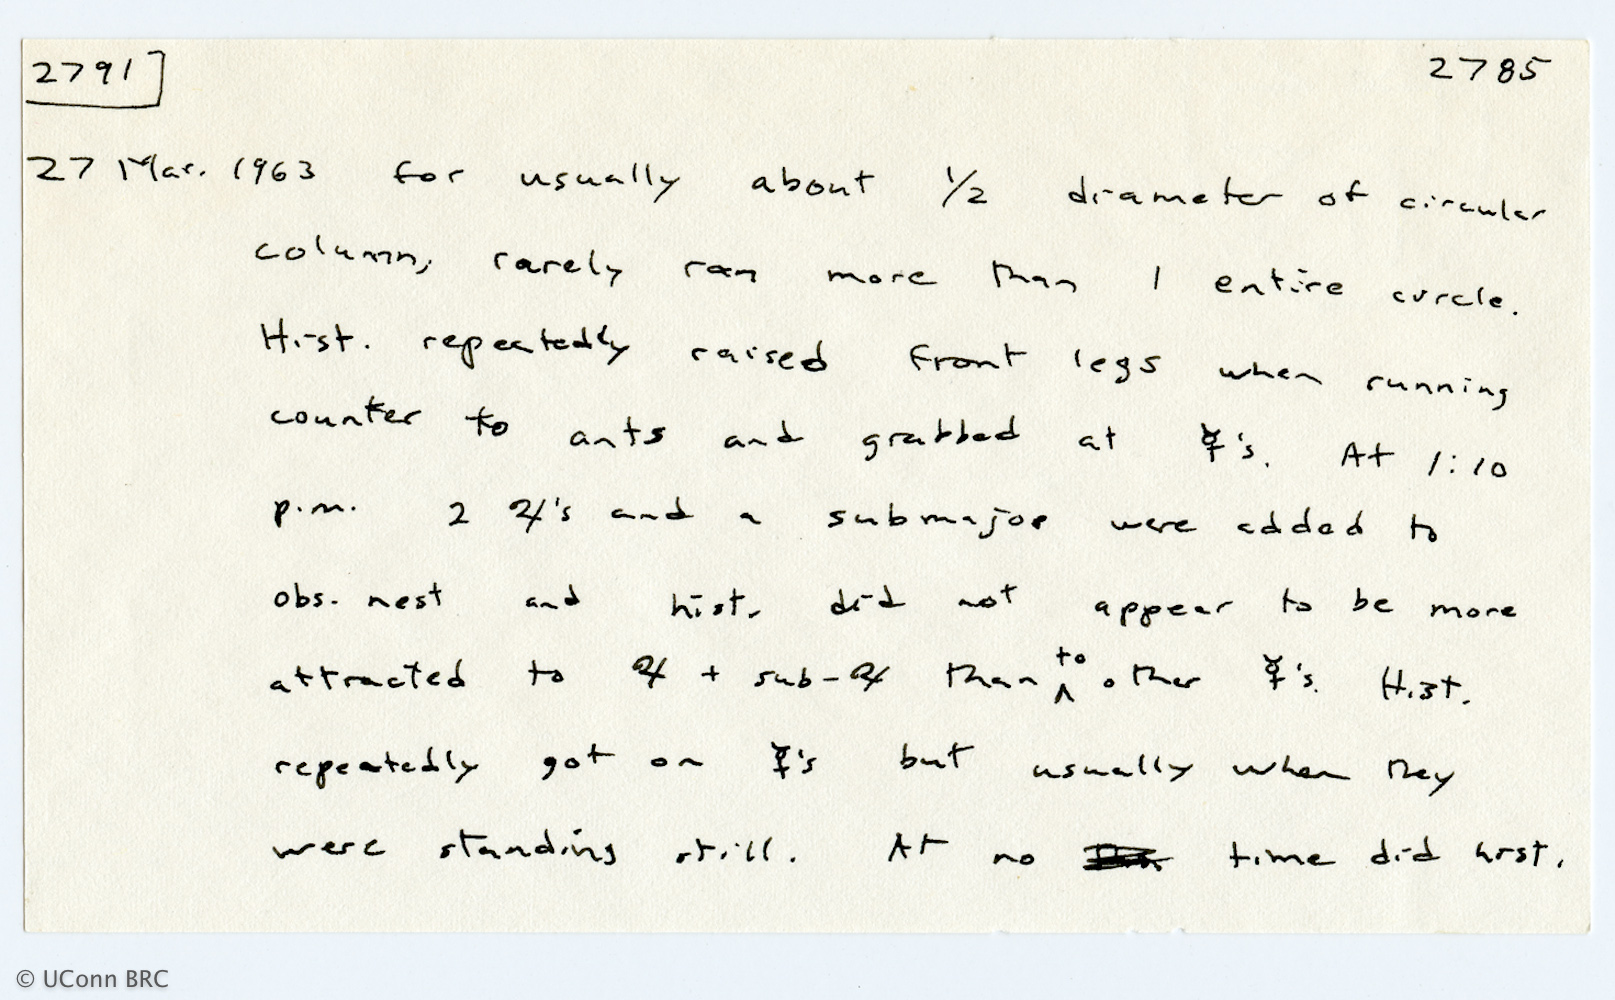 2791] 2785
27 Mar. 1963 for usually about 1/2 diameter of circular
column, rarely ran more than 1 entire circle.
Hist. repeatedly raised front legs when running
counter to ants and grabbed at ☿'s. At 1:10
p.m. 2 ♃'s and a submajor were added to
obs. nest and hist. did not appear to be more
attracted to ♃ + sub-♃ than to other ☿'s. Hist.
repeatedly got on ☿'s but usually when they
were standing still. At no time did hist.
© UConn BRC